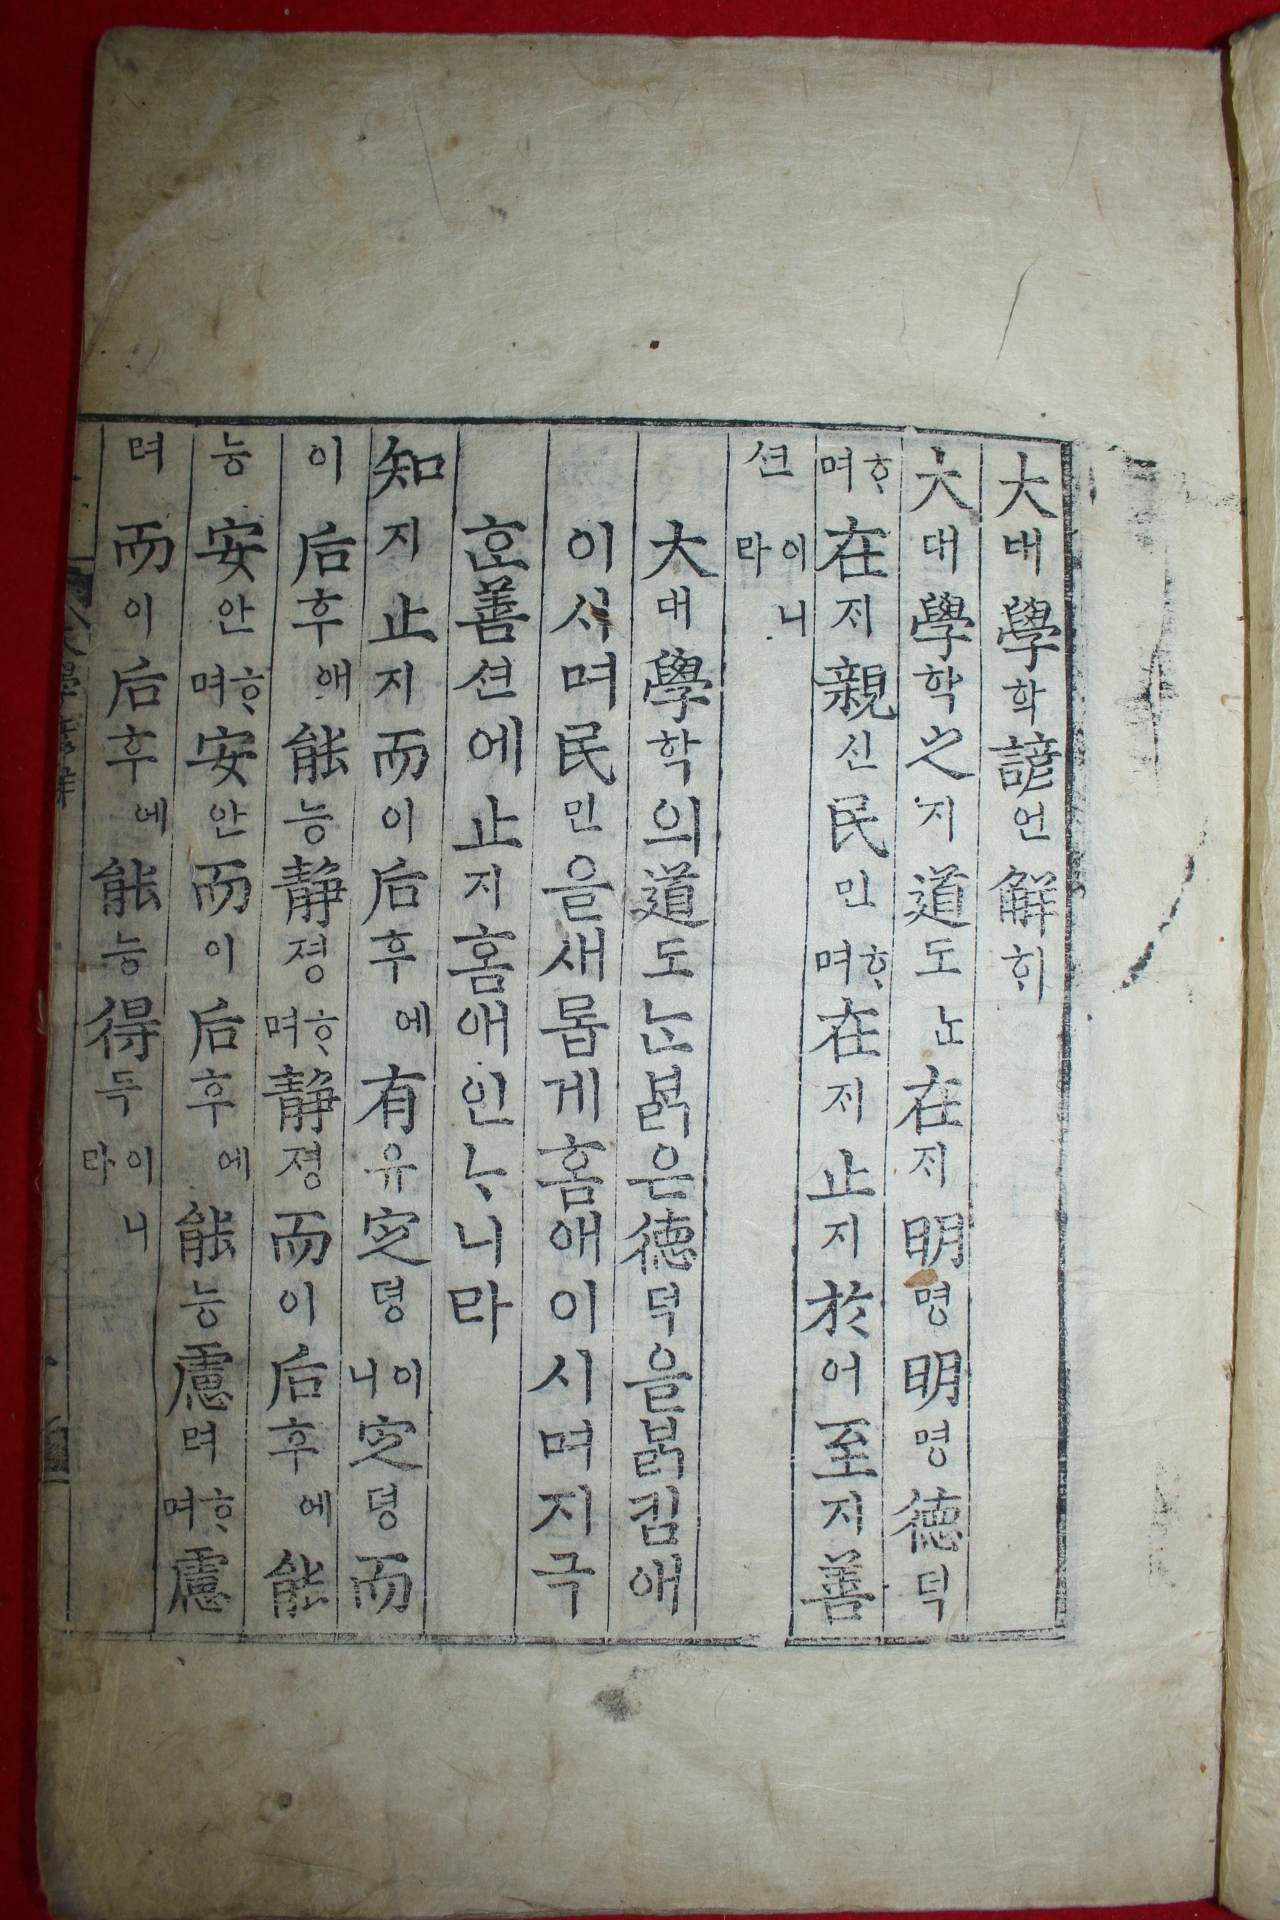 大대學학諺언解ᄒᆡ
大대學학之지道도ᄂᆞᆫ在ᄌᆡ明명明명德덕
ᄒᆞ며在ᄌᆡ親신民민ᄒᆞ며在ᄌᆡ止지於어至지善
션이니라
大대學학의道도ᄂᆞᆫ ᄇᆞᆰ은德덕을ᄇᆞᆰ킴애
이시며民민을새롭게홈애이시며지극
ᄒᆞᆫ善션에止지홈애인ᄂᆞ니라
知지止지而이后후에有유定뎡이니定뎡而
이后후애能능靜졍ᄒᆞ며靜졍而이后후에能
능安안ᄒᆞ며安안而이后후에能능慮려ᄒᆞ며慮
려而이后후에能능得득이니라